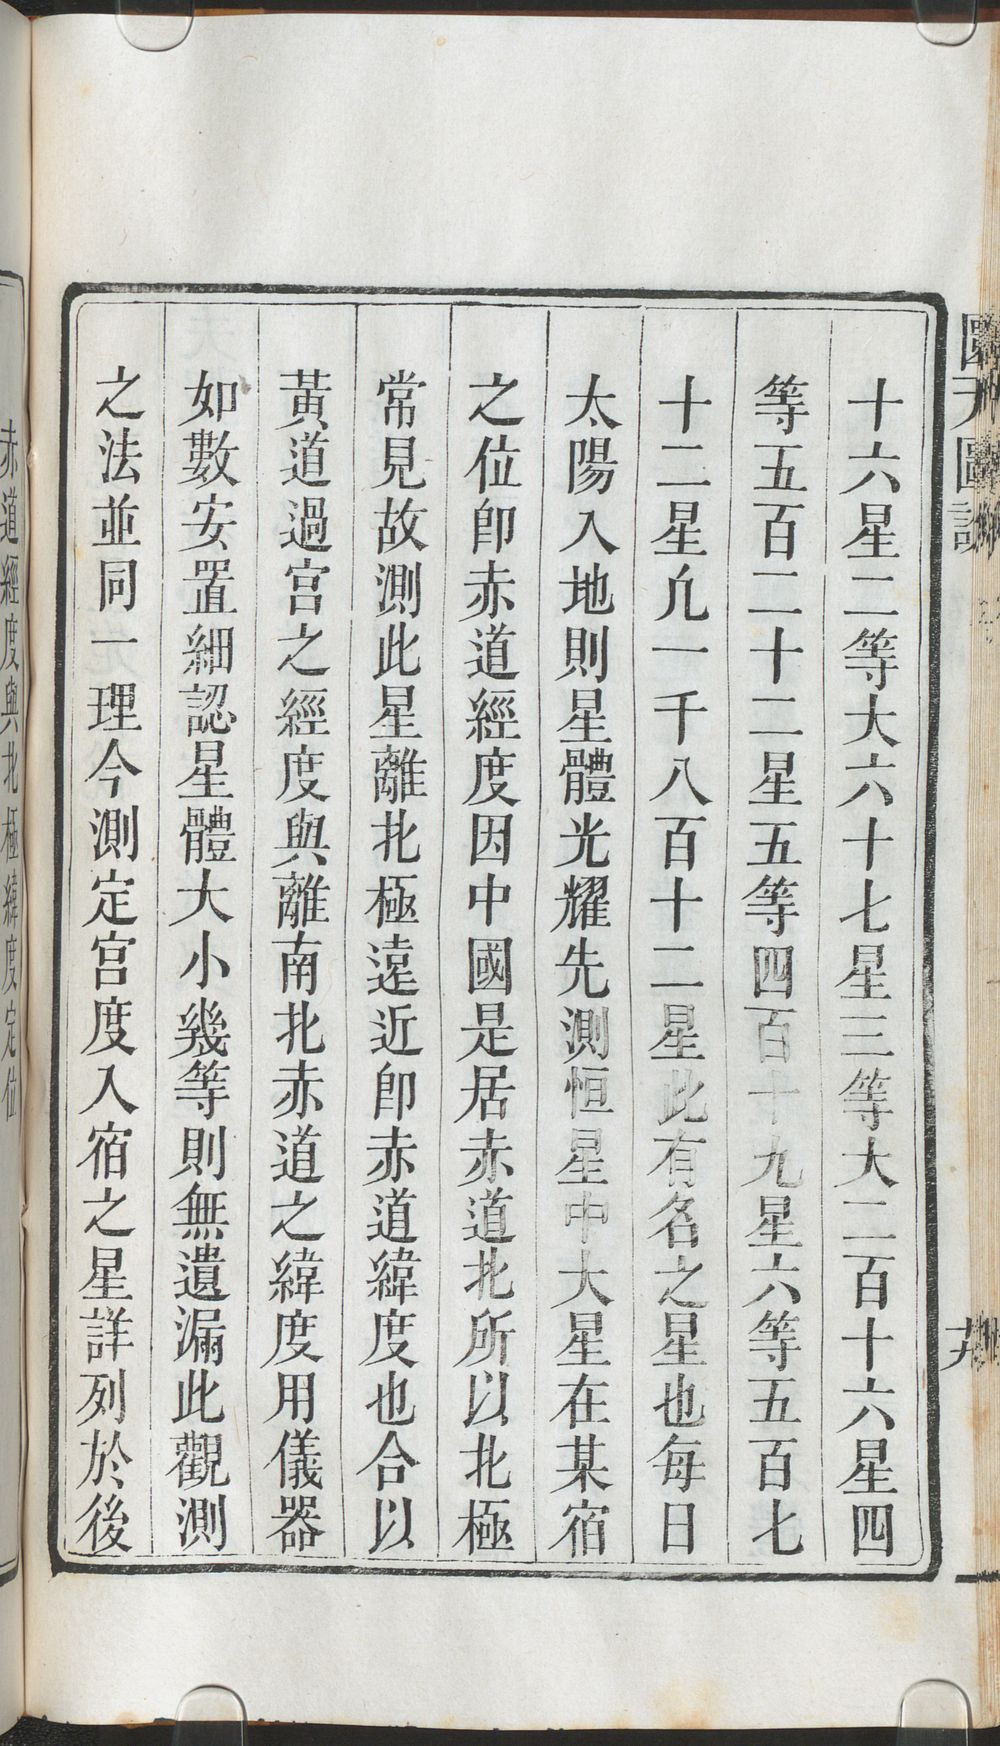 十六星二等大六十七星三等大二百十六星四
等五百二十二星五等四百十九星六等五百七
十二星凢一千八百十二星此有名之星也每日
太陽入地則星體光耀先測恒星中大星在某宿
之位卽赤道經度因中國是居赤道北所以北極
常見故測此星離北極遠近卽赤道緯度也合以
黃道過宮之經度與離南北赤道之緯度用儀器
如數安置細認星體大小幾等則無遺漏此觀測
之法並同一理今測定宮度入宿之星詳列於後
赤道經度與北極緯度定位